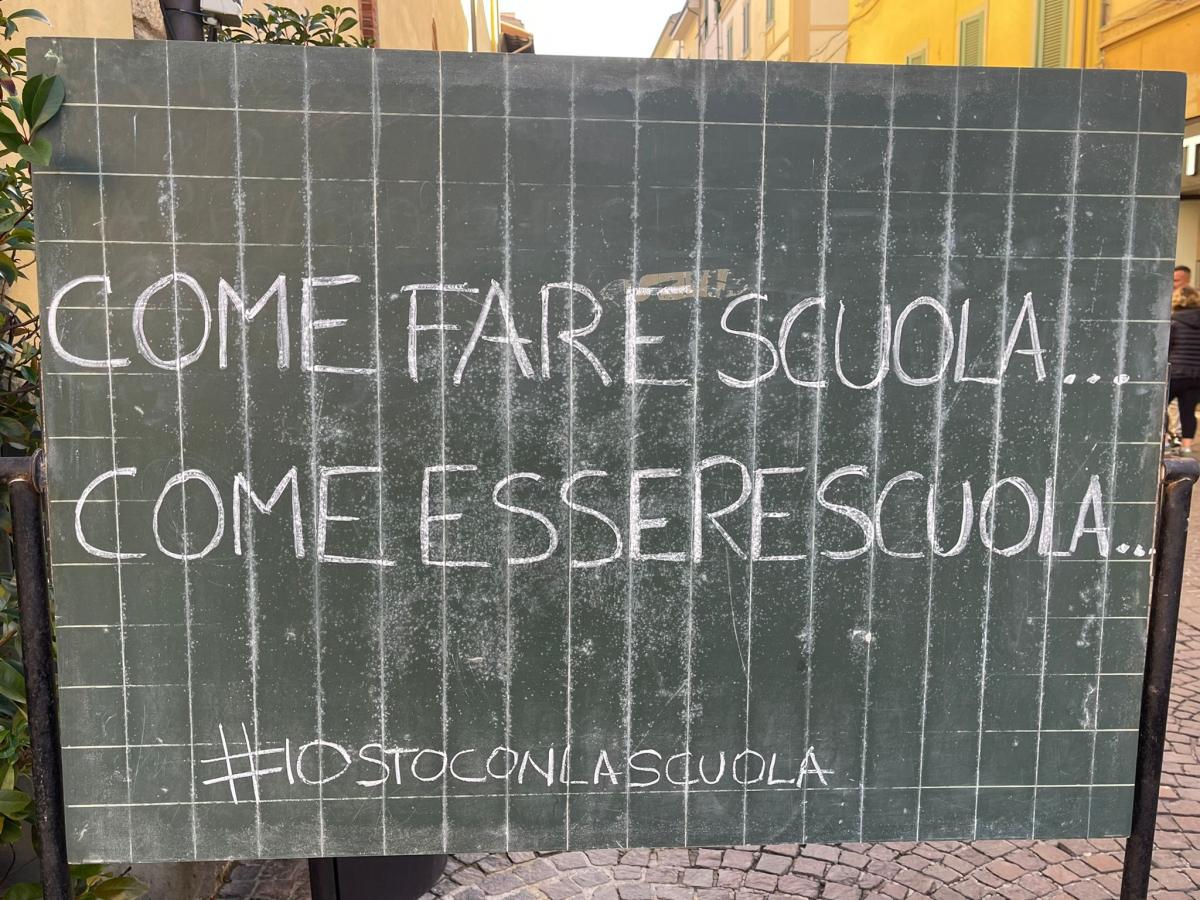 COME FARE SCUOLA...
COME ESSERE SCUOLA...
#IOSTOCONLASCUOLA